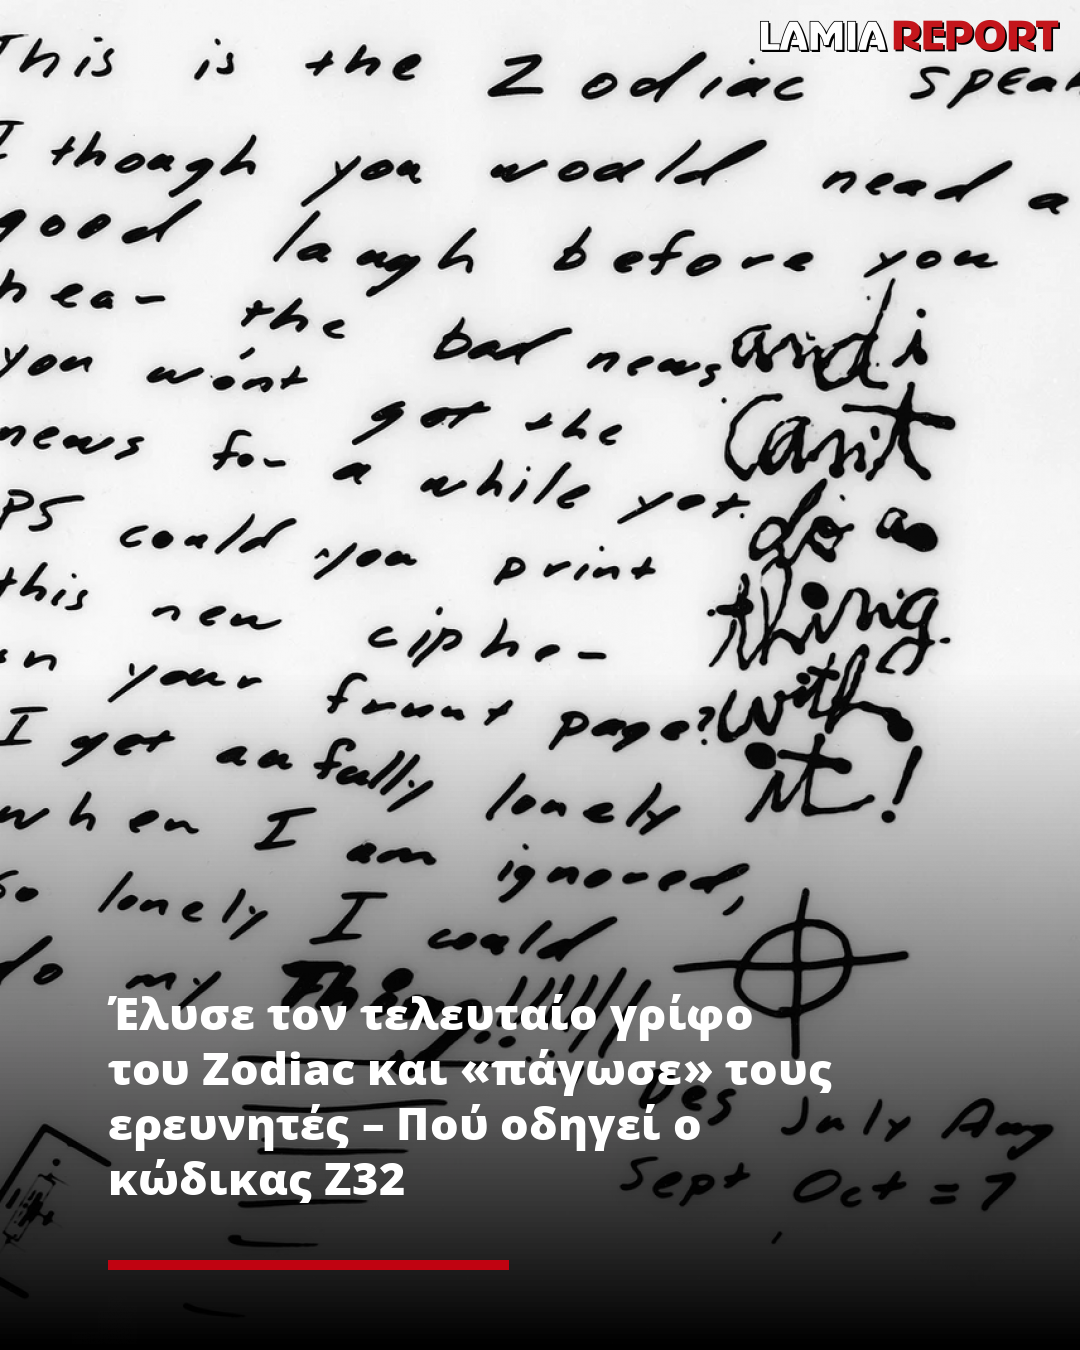 LAMIA REPORT
This is the Zodiac speak
I though you woald need a
good laugh before you
hear the bad news
you won't get the
news for a while yet.
PS could you print
this new cipher
on your frunt page?
I get aufully lonely
when I am ignored,
So lonely I could
do my Thing!!!!!!
and i
Can't
do a
thing
with
it!
Des July Aug
Sept Oct = 7
Έλυσε τον τελευταίο γρίφο
του Zodiac και «πάγωσε» τους
ερευνητές – Πού οδηγεί ο
κώδικας Ζ32